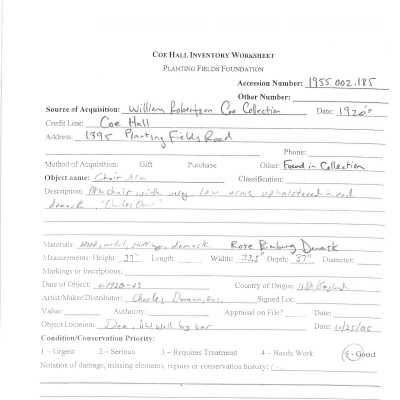 COE HALL INVENTORY WORKSHEET
PLANTING FIELDS FOUNDATION
Accession Number: 1955.002.185
Other Number:
Source of Acquisition: William Robertson Coe Collection Date: 1920's
Credit Line: Coe Hall
Address: 1395 Planting Fields Road
Phone:
Method of Acquisition: Gift Purchase Other: Found in Collection
Object name: Chair, Arm Classification:
Description: Armchair with very low arms upholstered in red
damask,
Materials: damask Rose Damask
Measurements: Height: 37" Length: Width: 33.5" Depth: 37" Diameter:
Markings or inscriptions:
Date of Object: Country of Origin: US/England
Artist/Maker/Distributor: Charles Signed Loc.
Value: Authority: Appraisal on File? Date:
Object Location: Den, wall by bar Date:
Condition/Conservation Priority:
1 – Urgent 2 – Serious 3 – Requires Treatment 4 – Needs Work 5 - Good
Notation of damage, missing elements, repairs or conservation history: